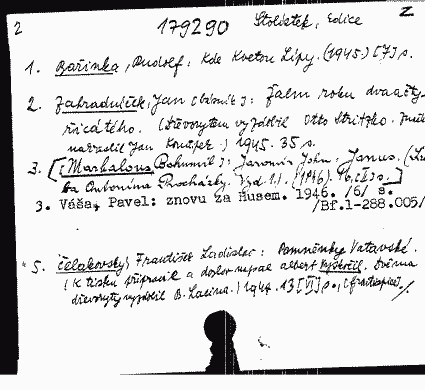 2 179290 Stoletek, Edice Z
1. Bařinka, Rudolf: Kde kvetou lípy. (1945.) [7] s.
2. Zahradníček, Jan [básník]: Žalm roku dvaačty-
řicátého. (Dřevorytem vyzdobil Otto Stritzko.
Jan 1945. 35 s.
3. [Marhaloul Bohumil]: Jaromír John, Janus.
ba Antonína Procházky. Vyd. 1.). (1946). 16, [1] s.]
3. Váša, Pavel: znovu za Husem. 1946. /6/ s.
/Bf.1-288.005/
5. Čelakovský František Ladislav: Pomněnky Vatavské.
(K tisku připravil a doslov napsal Albert Vyskočil. Dvěma
dřevoryty vyzdobil B. Lacina.) 194 13 [VI] s., [frontispice]/.